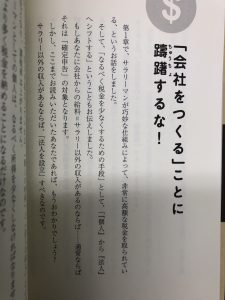 $
「会社をつくる」ことに
ちゅうちょ
躊躇するな!
第1章で、サラリーマンが巧妙な仕組みによって、非常に高額な税金を取られてい
る、というお話をしました。
そして、「なるべく税金を少なくするための手段」として、「個人」から「法人」
へシフトする」ということもお伝えしました。
もしあなたに会社からの給料=サラリー以外の収入があるのならば、通常ならば
それは「確定申告」の対象となります。
しかし、ここまでお読みいただいたあなたであれば、もうおわかりでしょう!
サラリー以外の収入があるならば、「法人を設立」すべきなのです。